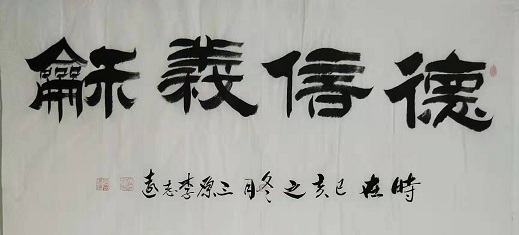 德信義龢
時在己亥之冬月三原李志遠